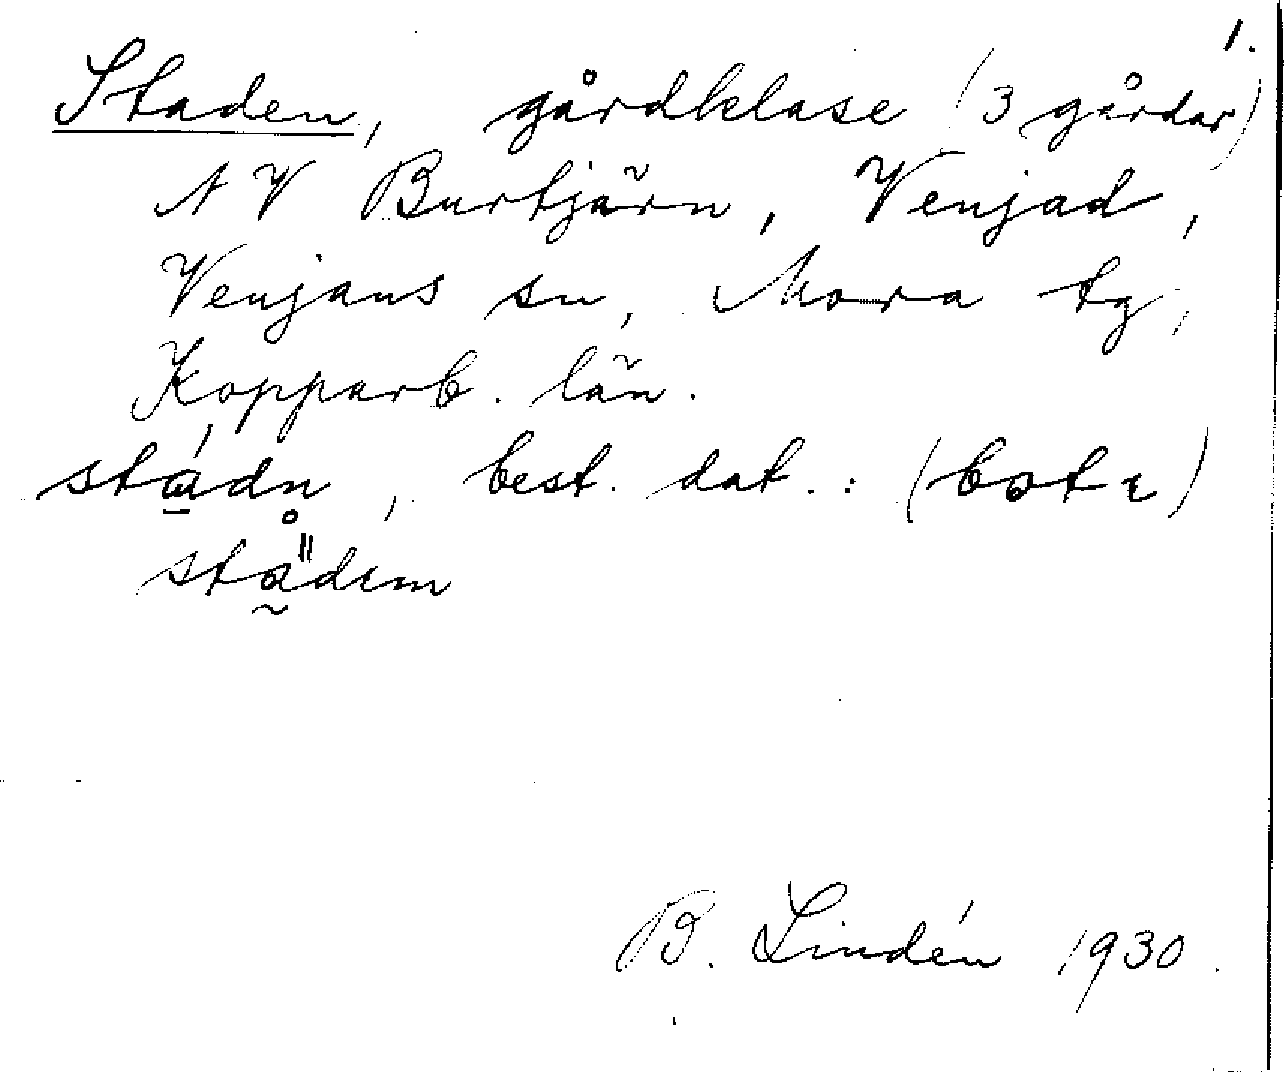 1.
Staden, gårdklase (3 gårdar)
NV Burtjärn, Venjad,
Venjans sn, Mora tg,
Kopparb. län.
stádn̥, best. dat.: (bot ı)
sta̋dım
B. Lindén 1930.